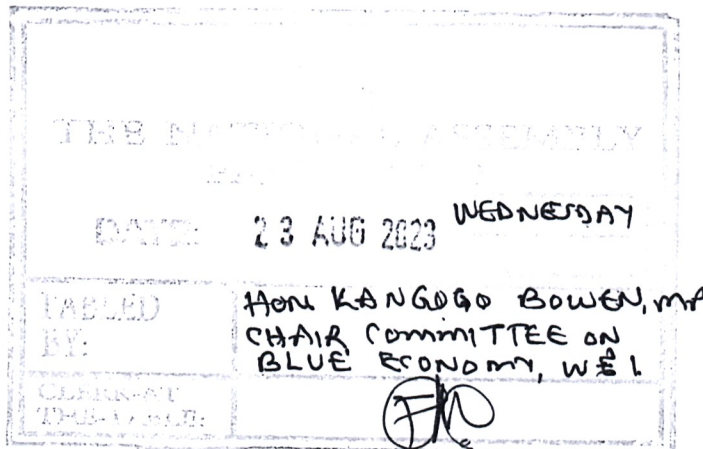 THE NATIONAL ASSEMBLY
DATE: 23 AUG 2023 WEDNESDAY
TABLED BY: HON KANGOGO BOWEN, MP
CHAIR COMMITTEE ON
BLUE ECONOMY, W & I
CLERK-AT
THE-TABLE: